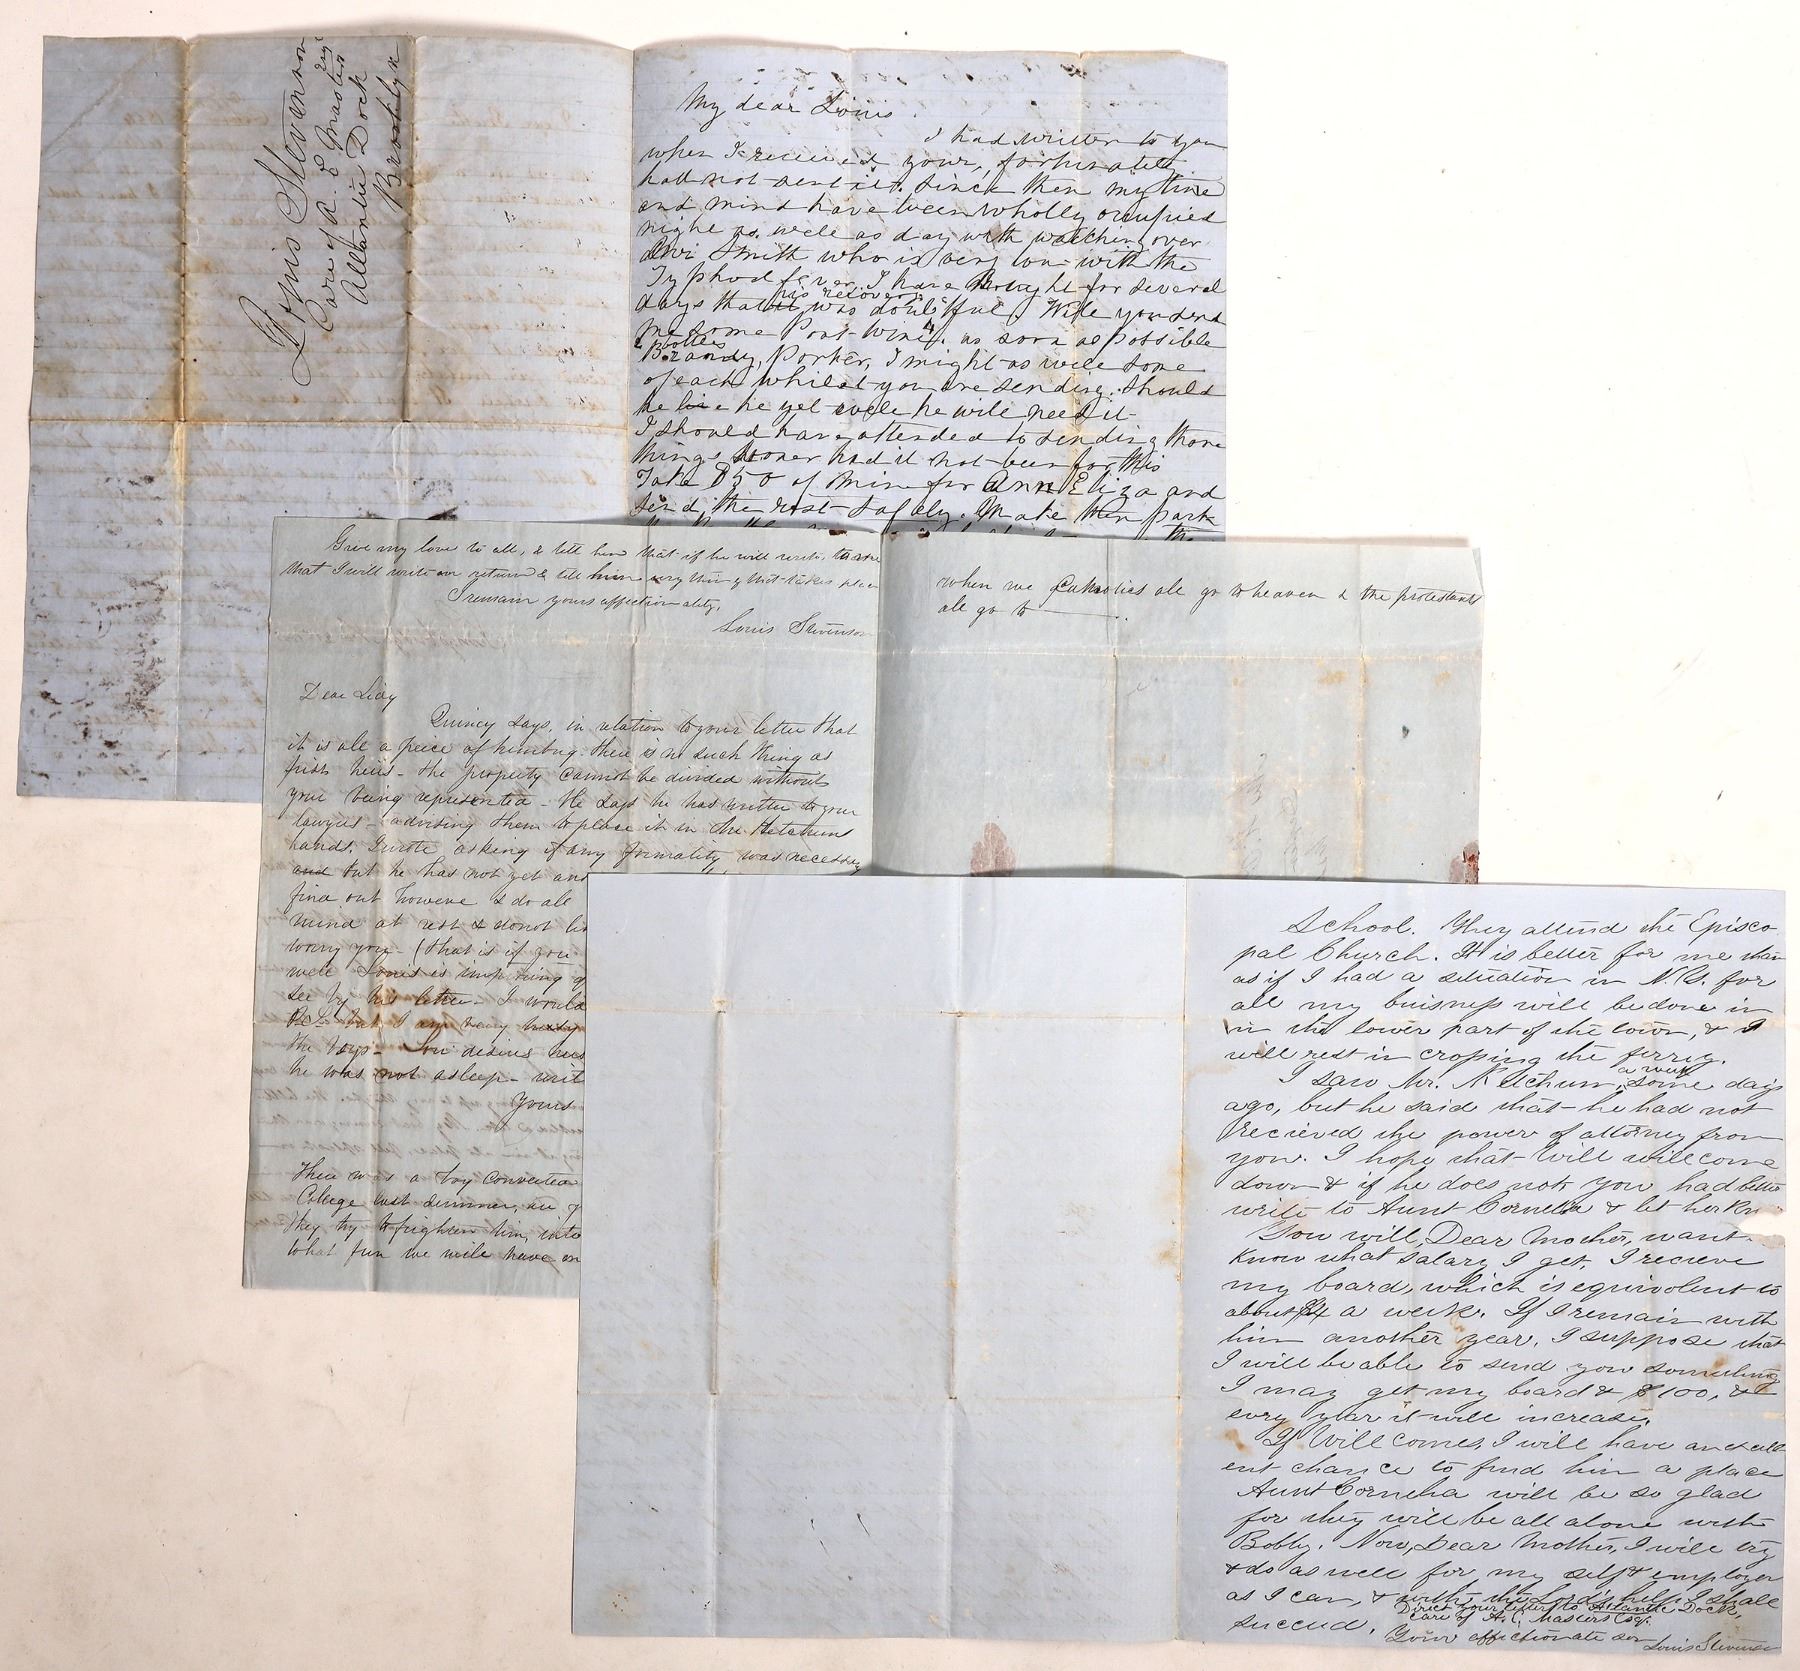 Louis Stevenson
Care of R. L. Masters
Atlantic Dock
Brooklyn
My dear Louis.
I had written to you
when I received your, fortunately
had not sent it. Since then my time
and mind have been wholly ocupied
night as well as day with watching over
Smith who is very low with the
Typhod fever. I have thought for several
days that his recovery was doubtful. Will you send
me some Port Wine, 4 as soon as possible
2 bottles
Brandy, Porter, I might as well some
of each whilst you are sending. Should
he live he yet well he will need it
I should have attended to sending those
things sooner had it not been for this
Take $50 of mine for Ann Eliza and
send the rest safely. Make them park
Give my love to all, & tell him that if he will write to me
that I will write on return & tell him everything that takes place
I remain yours affectionately,
Louis Stevenson
Dear Lidy
Quincy says, in relation to your letter that
it is all a peice of humbug. there is no such thing as
first heirs - the property cannot be divided without
your being represented - He says he had written to your
lawyers - advising them to place it in the Ketchums
hands. I wrote asking if any formality was necessary
and but he has not yet ans
find out however & do all
mind at rest & donot
worry you - (that is if you
well Louis is improving
see by his letter - I would
but I am very
the boys - desires
he was not asleep - writ
Yours
There was a boy converted
College last summer,
they try to frighten him, into
what fun we will have
when we Catholics all go to heaven & the protestants
all go to ———.
School. They attend the Episco
pal Church. It is better for me than
as if I had a situation in N.Y. for
all my buisness will be done in
in the lower part of the town, & I
will rest in crossing the ferry.
I saw Mr. Ketchum, a week some days
ago, but he said that he had not
recieved the power of attorney from
you. I hope that Will will come
down & if he does not, you had better
write to Aunt Cornelia & let her kn
You will, Dear Mother, want
know what salary I get. I recieve
my board, which is equivolent to
about $4 a week. If I remain with
him another year, I suppose that
I will be able to send you something
I may get my board & $100, &
every year it will increase.
If Will comes, I will have an exell
ent chance to find him a place
Aunt Cornelia will be so glad
for they will be all alone with
Bobby. Now, Dear Mother, I will try
& do as well for my self & employer
as I can, & with the Lord's help I shall
succeed.
Direct your letter to Atlantic Dock,
Care of A. C. Masters Esq.
Your affictionate son
Louis Stevenson